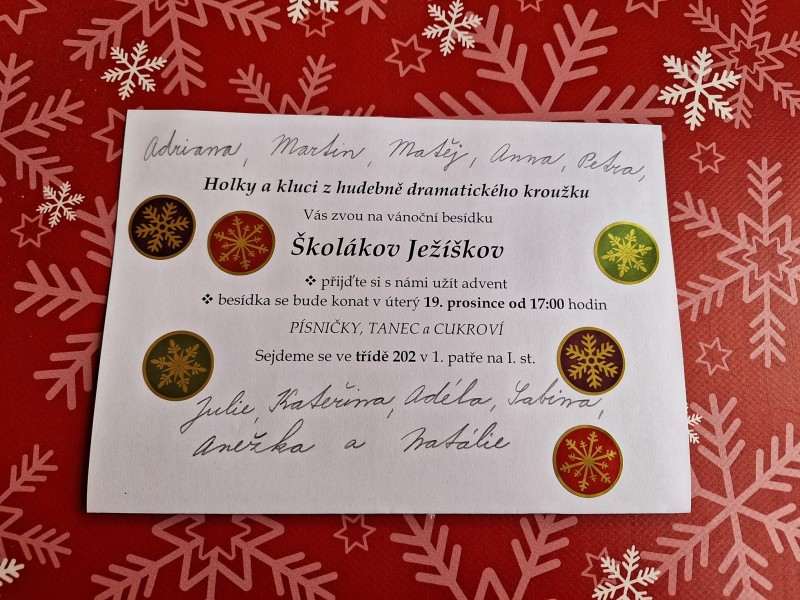 Adriana, Martin, Matěj, Anna, Petra,
Holky a kluci z hudebně dramatického kroužku
Vás zvou na vánoční besídku
Školákov Ježíškov
❖ přijďte si s námi užít advent
❖ besídka se bude konat v úterý 19. prosince od 17:00 hodin
PÍSNIČKY, TANEC a CUKROVÍ
Sejdeme se ve třídě 202 v 1. patře na I. st.
Julie, Kateřina, Adéla, Sabina,
Anežka a Natálie